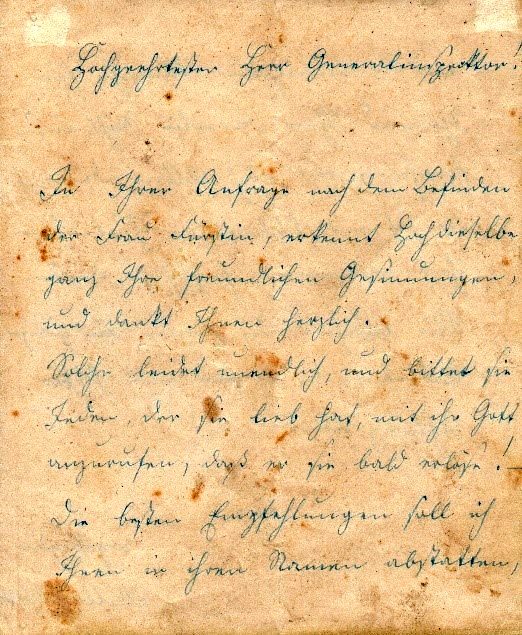 Hochgeehrtester Herr Generalinspektor!
In Ihrer Anfrage nach dem Befinden
der Frau Fürstin, erkennt Hochdieselbe
ganz Ihre freundlichen Gesinnungen,
und dankt Ihnen herzlich.
Solche leidet unendlich, und bittet sie
Jeden, der sie lieb hat, mit ihr Gott
anzurufen, daß er sie bald erlöse! –
Die besten Empfehlungen soll ich
Ihnen in ihren Namen abstatten,